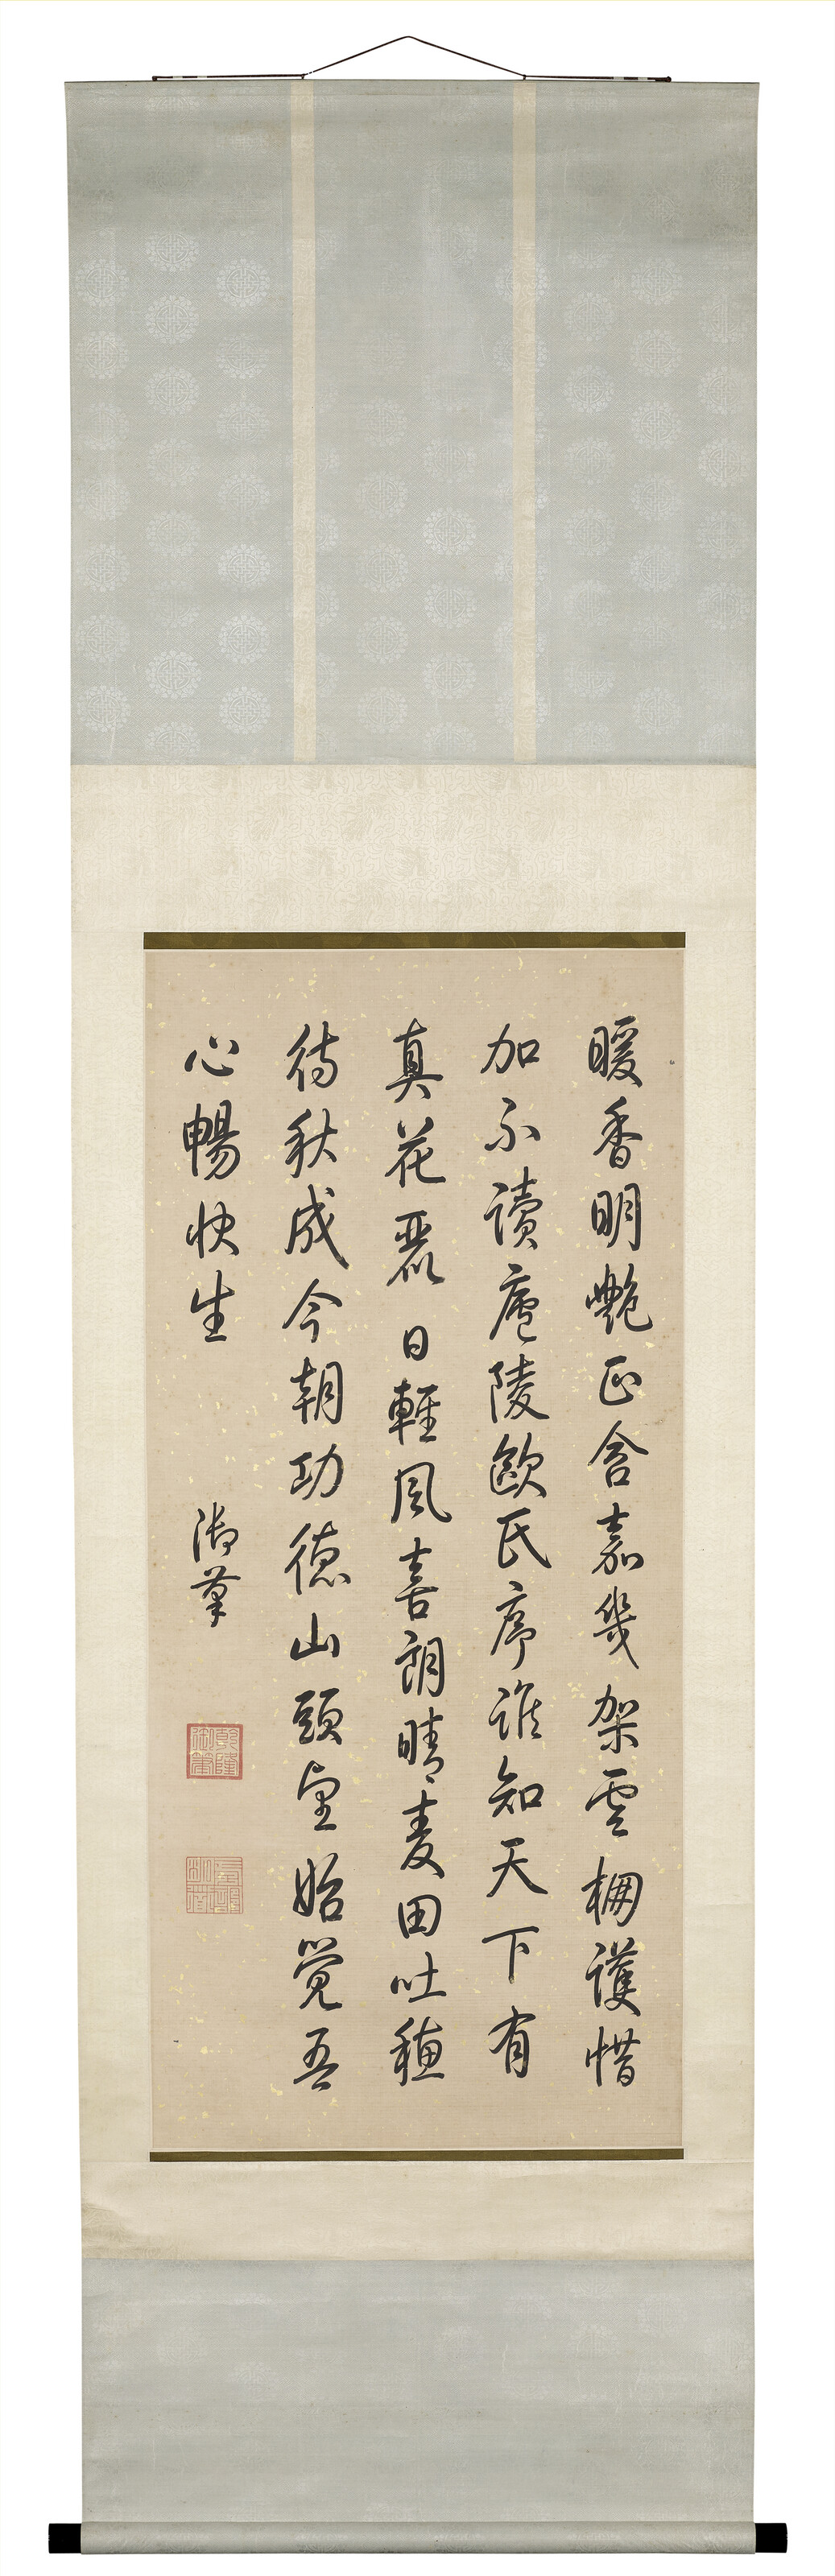 暖香明艷正含嘉幾架雲棚護惜
加不讀廬陵歐氏序誰知天下有
真花麗日輕風喜朗晴麦田吐穗
待秋成今朝功德山頭望始覺吾
心暢快生
御筆
乾隆御筆